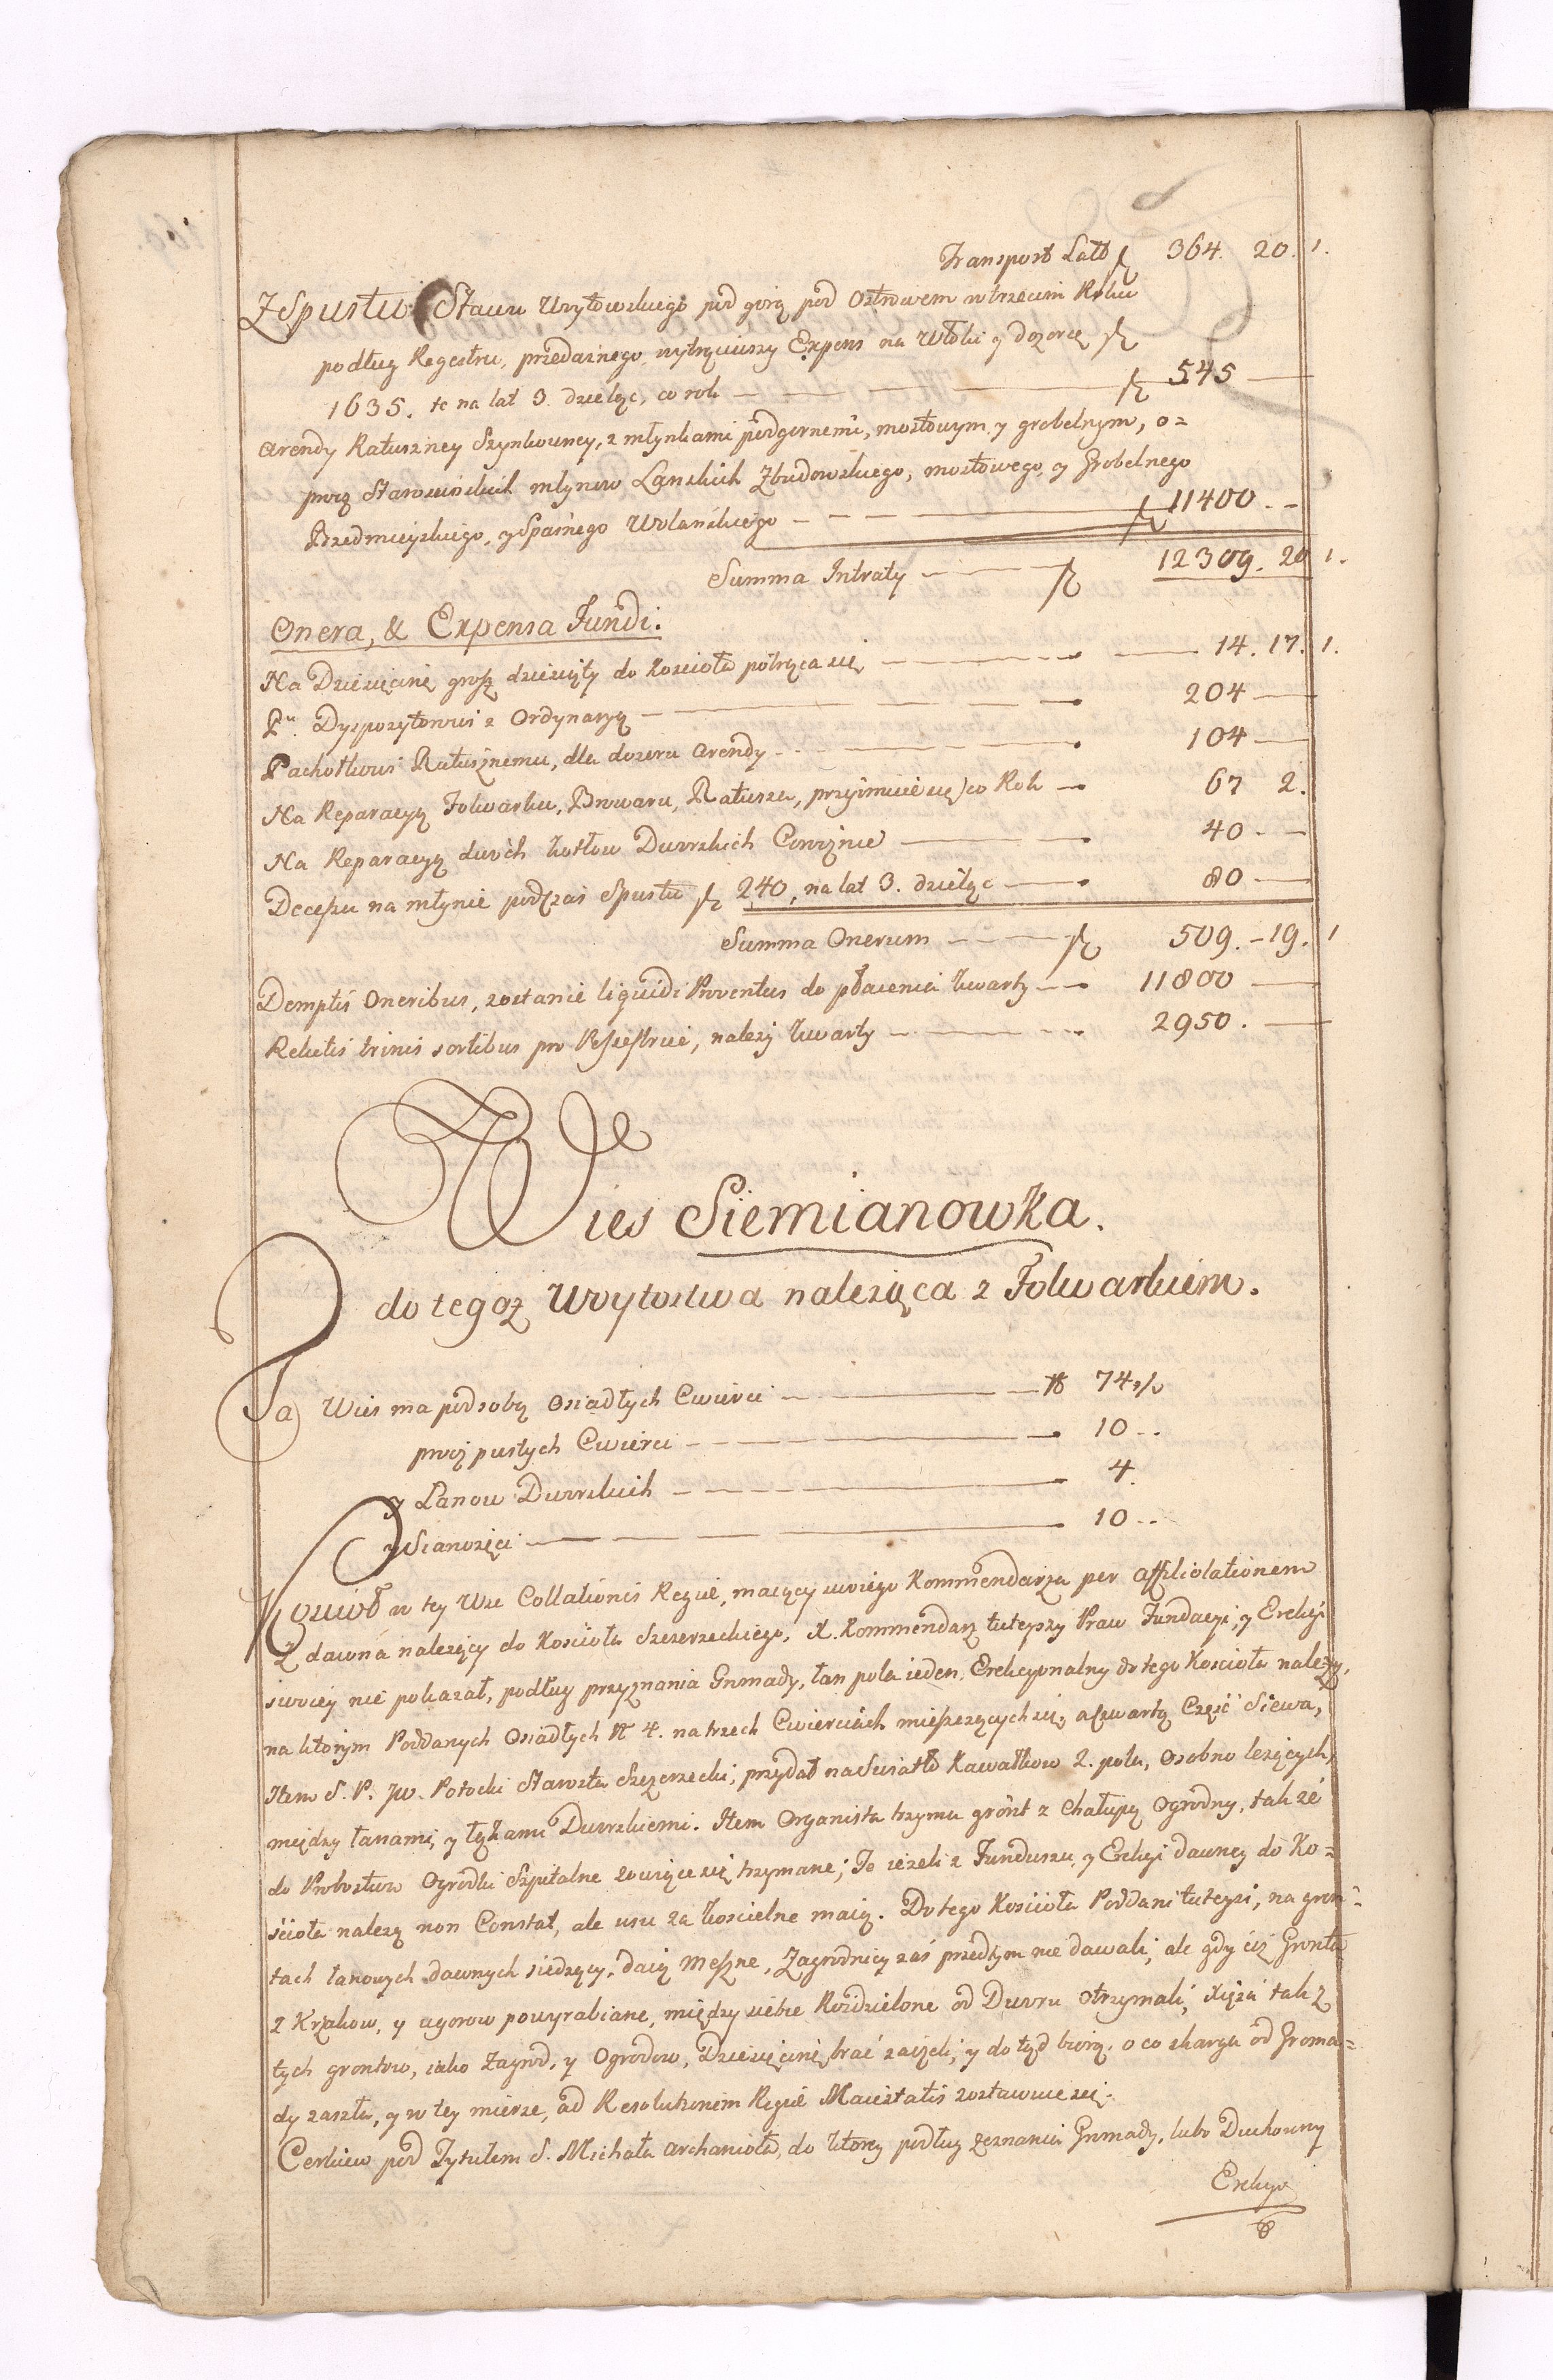 Transport Latt fl 364. 20. 1.
Z Spustu Stawu Wytowskiego pod gorą pod Ostrowem w trzecim Roku
podług Regestru, przedaznego, wytrąciwszy Expens na Włoki y dozorcę fl
1635. te na lat 3. dzieląc, co rok — fl 545 —
Arendy Ratuszney Szynkowney, z młynkami podgornemi, mostowym y grobelnym, o=
procz Starościńskich młynow Lanskich Zbudowskiego, mostowego, y Grobelnego
Przedmieyskiego, y Spasnego Wolańskiego — fl 11400. —
Summa Intraty — fl 12309. 20 1.
Onera, & Expensa Fundi.
Na Dziesięcinę grosz dziesięty do Kościoła potrąca się — 14. 17. 1.
Pu. Dyspozytorowi z Ordynaryą — 204 —
Pachołkowi Ratusznemu, dla dozoru Arendy — 104 —
Na Reparacyą Folwarku, Browaru, Ratusza, przyimuie się co Rok — 67 2.
Na Reparacyą dwoch kotłow Dworskich Corocznie — 40 —
Decessu na młynie podczas Spustu fl 240, na lat 3. dzieląc — 80 —
Summa Onerum — fl 509. – 19. 1
Demptis Oneribus, zostanie liquidi Proventus do płacenia kwarty — 11800 —
Relictis trinis sortibus pro Possessore, należy kwarty — 2950. —
Wies Siemianowka.
do tegoz Woytostwa należąca z Folwarkiem.
Ta Wies ma pod sobą Osiadłych Cwierci — № 74 3/4
procz pustych Cwierci — 10 —
y Łanow Dworskich — 4.
y Sianożęci — 10 —
Kosciół w tey Wsi Collationis Regiæ, maiący swoiego Kommendarza per affiliationem
z dawna należący do Kościoła Szczerzeckiego, X. Kommendarz tuteyszy Praw Fundacyi, y Erekcyi
swoiey nie pokazał, podług przyznania Gromady, łan pola ieden, Erekcyonalny do tego Kościoła należy,
na ktorym Poddanych Osiadłych № 4. na trzech Cwierciach mieszczących się, a czwartą Część Siewa,
Item S. P. JW. Potocki Starosta Szczerzecki, przydał na Swiatło Kawałkow 2. pola, Osobno leżących,
między łanami, y łąkami Dworskiemi. Item Organista trzyma grónt z Chałupą Ogrodny, tak ze
do Probostwa Ogrodki Szpitalne zowiące się trzymane; To ieżeli z Funduszu, y Erekcyi dawney do Ko=
ścioła należą non Constat, ale usu za kościelne maią. Do tego Kościoła Poddani tuteysi, na gron=
tach łanowych dawnych siedzący, daią Meszne, Zagrodnicy zaś przedtym nie dawali, ale gdy ciż Gronta
z Krzakow, y ugorow powyrabiane, między siebie Rozdzielone od Dworu otrzymali, Xięża tak z
tych grontow, iako Zagrod, y Ogrodow, Dziesięcinę brać zaczeli, y do tąd biorą, o co skarga od Groma=
dy zaszła, y w tey mierze, ad Resolutionem Regiæ Maiestatis zostawuie się.
Cerkiew pod Tytułem S. Michała Archanioła, do ktorey podług zeznania Gromady, lubo Duchowny
Erekcyi